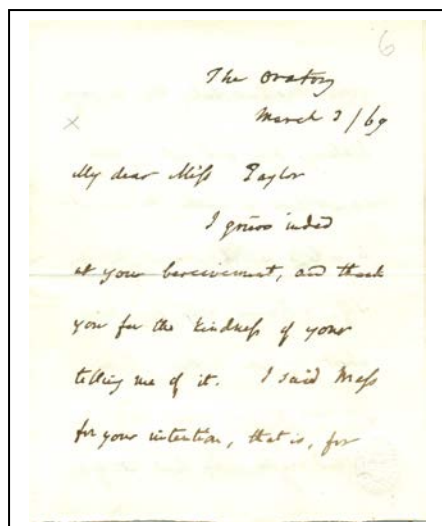 6
The Oratory
March 3/69
x
My dear Miss Taylor
I grieve indeed
at your bereavement, and thank
you for the kindness of your
telling me of it. I said Mass
for your intention, that is, for